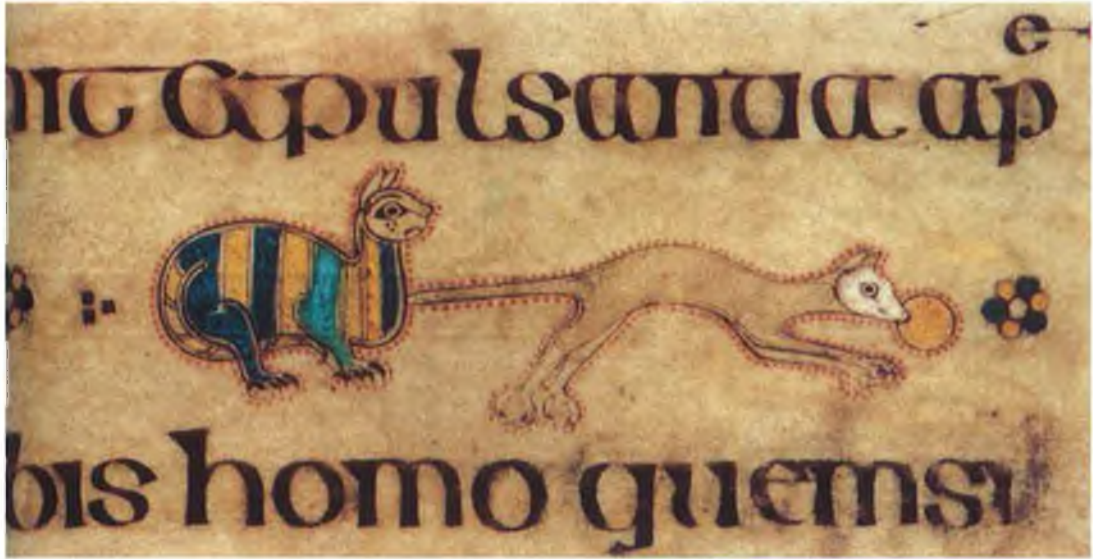 e
nit &pulsantia ap
bis homo quemsi